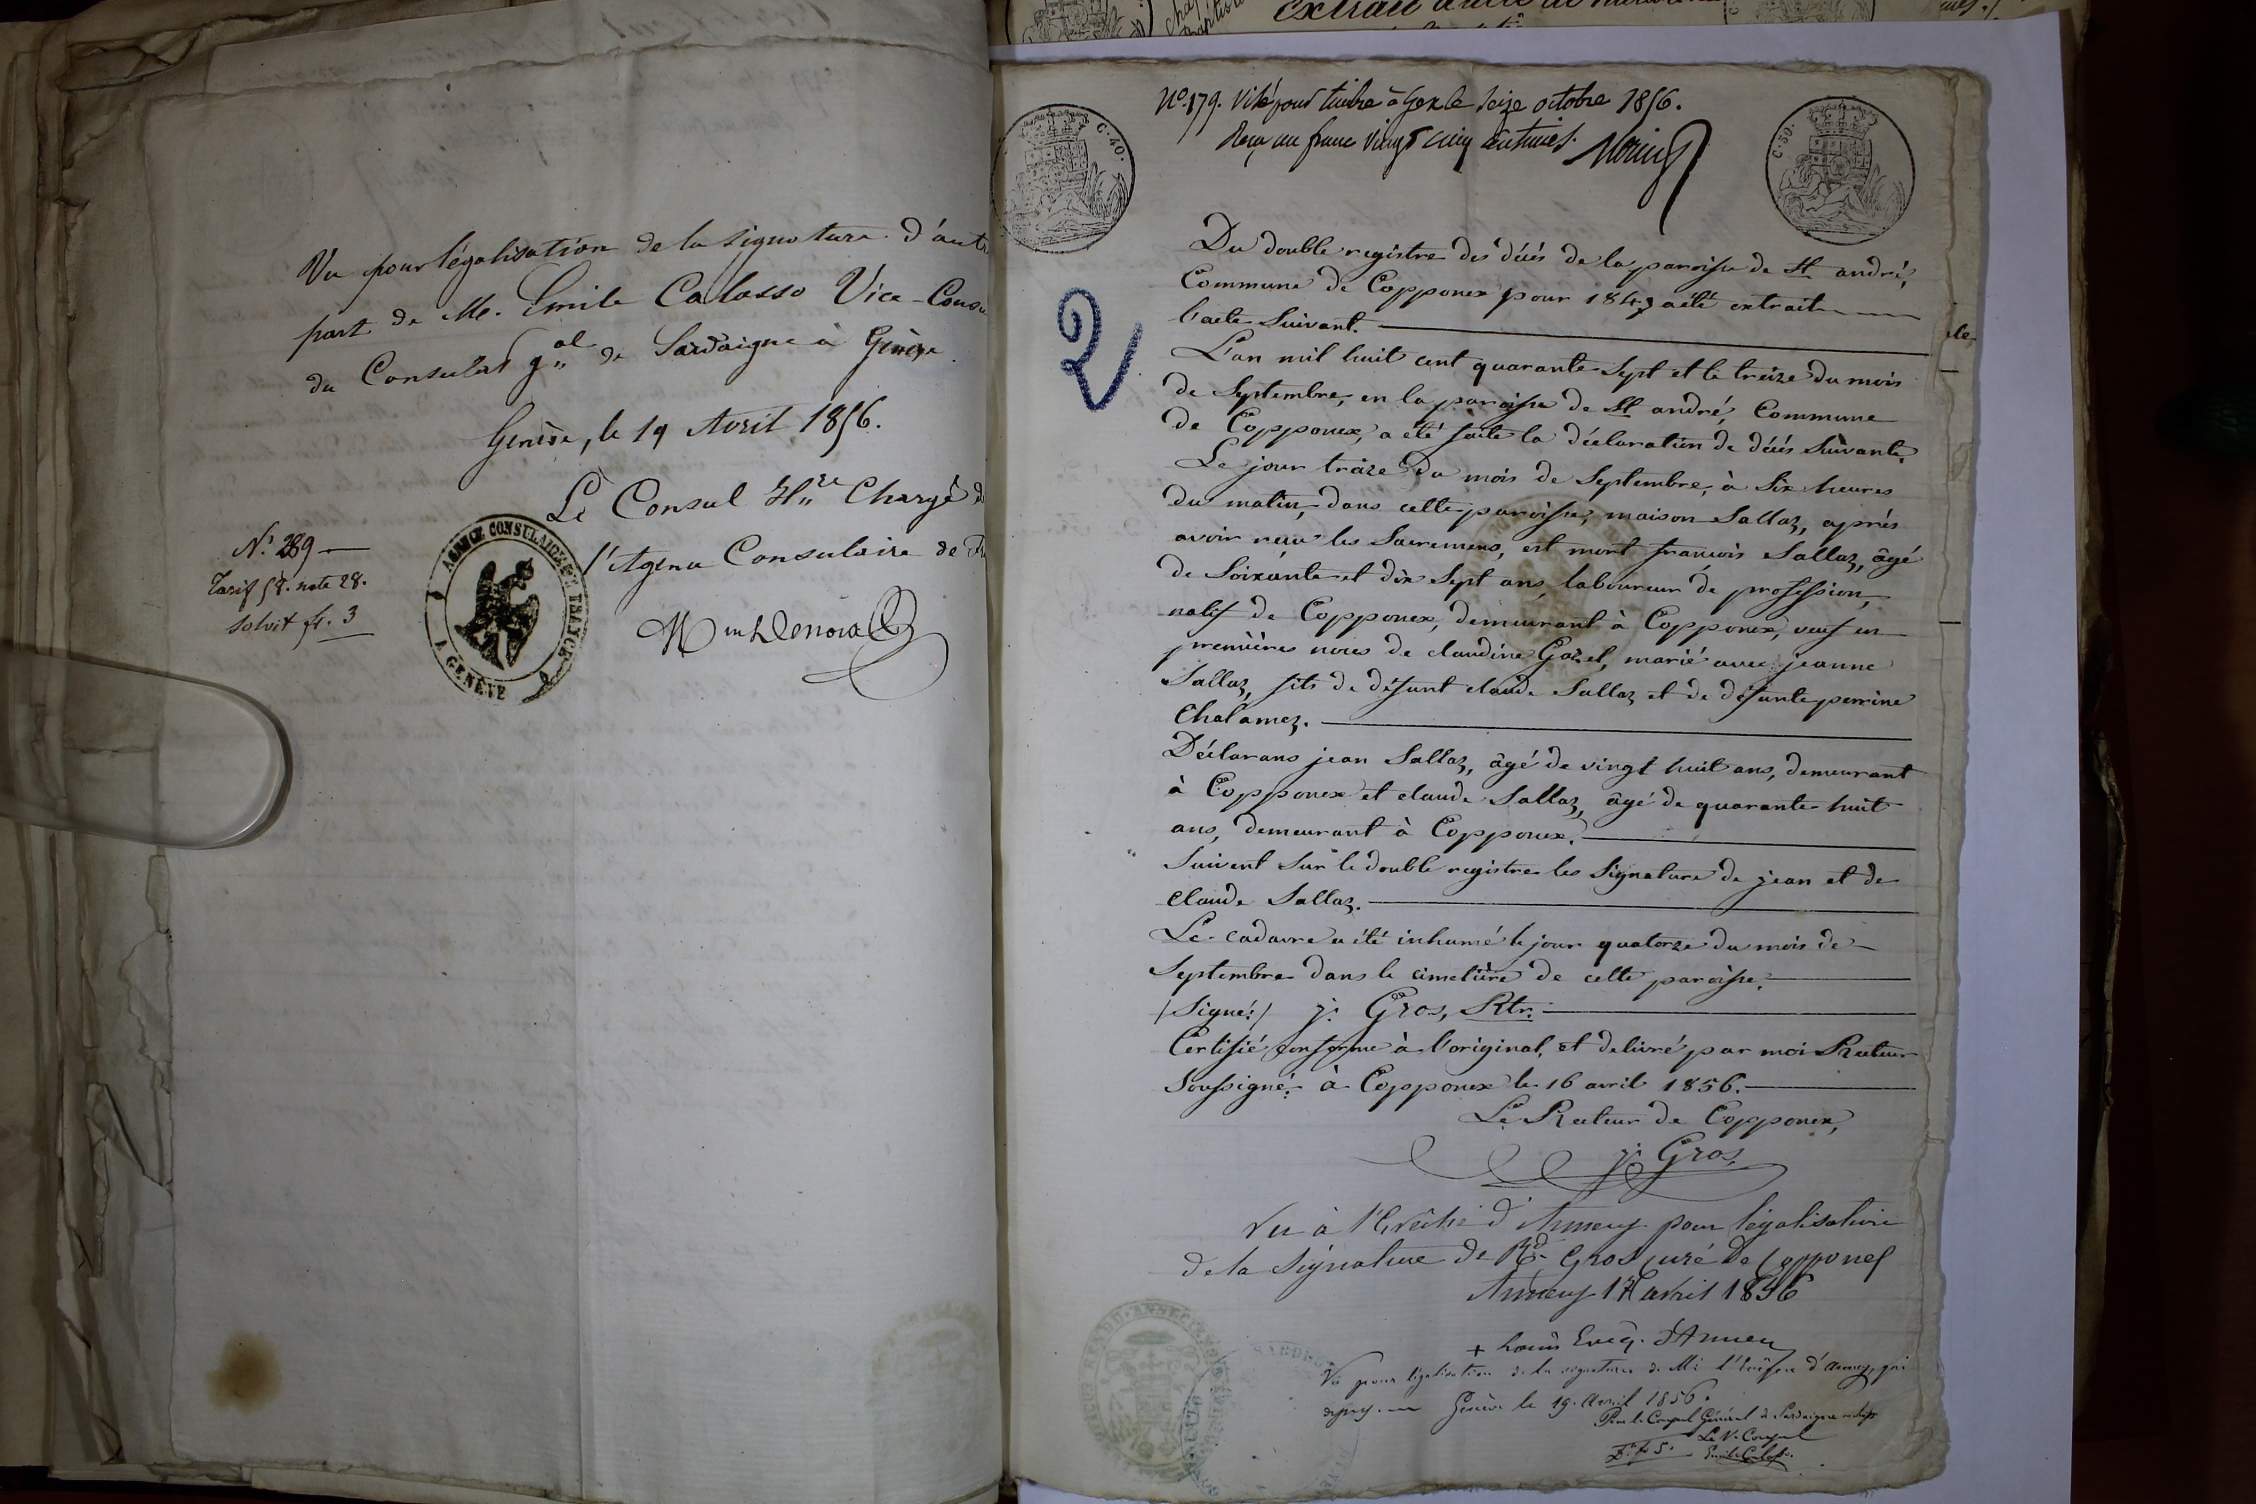 Vu pour légalisation de la signature d'autre
part de Mr. Emile Calosso Vice-Consu
du Consulat gal de Sardaigne à Genève.
Genève, le 19 Avril 1856.
Le Consul Hre Chargé de
l'Agence Consulaire de
N.° 289
Tarif 58. note 28.
solvit fr. 3
AGENCE CONSULAIRE DE FRANCE
A GENÈVE
extrait d'acte de
N.° 179. Visé pour timbre à Gex le seize octobre 1856.
Reçu un franc vingt cinq centimes.
C. 40.
C. 50.
2
Du double registre des décés de la paroisse de St andré,
Commune de Copponex pour 1847 a été extrait
l'acte Suivant.
L'an mil huit cent quarante Sept et le treize du mois
de Septembre, en la paroisse de St andré, Commune
de Copponex, a été faite la déclaration de décés Suivante.
Le jour treize du mois de Septembre, à Six heures
du matin, dans cette paroisse, maison Sallaz, aprés
avoir reçu les Sacremens, est mort françois Sallaz, âgé
de Soixante et dix Sept ans, laboureur de profession,
natif de Copponex, demeurant à Copponex, veuf en
premières noces de claudine Gozel, marié avec jeanne
Sallaz, fils de défunt claude Sallaz et de défunte perrine
Chalamez.
Déclarans jean Sallaz, âgé de vingt huit ans, demeurant
à Copponex et claude Sallaz, âgé de quarante huit
ans, demeurant à Copponex.
Suivent Sur le double registre les Signature de jean et de
Claude Sallaz.
Le cadavre a été inhumé le jour quatorze du mois de
Septembre dans le cimetière de cette paroisse.
/Signé:/ j. Gros, Rtr.
Certifié conforme à l'original, et delivré par moi Recteur
Soussigné: à Copponex le 16 avril 1856.
Le Recteur de Copponex,
j. Gros,
Vu à l'Evêché d'Annecy pour légalisation
de la signature de Rd Gros curé de Copponex
Annecy 17 avril 1856
+ Louis Evêq. d'Annecy
Vu pour légalisation de la signature de Mr l'Evêque d'Annecy, qui
Genève le 19. Avril 1856.
Pour le Consul Général de Sardaigne
Le V. Consul
Emile Calosso.